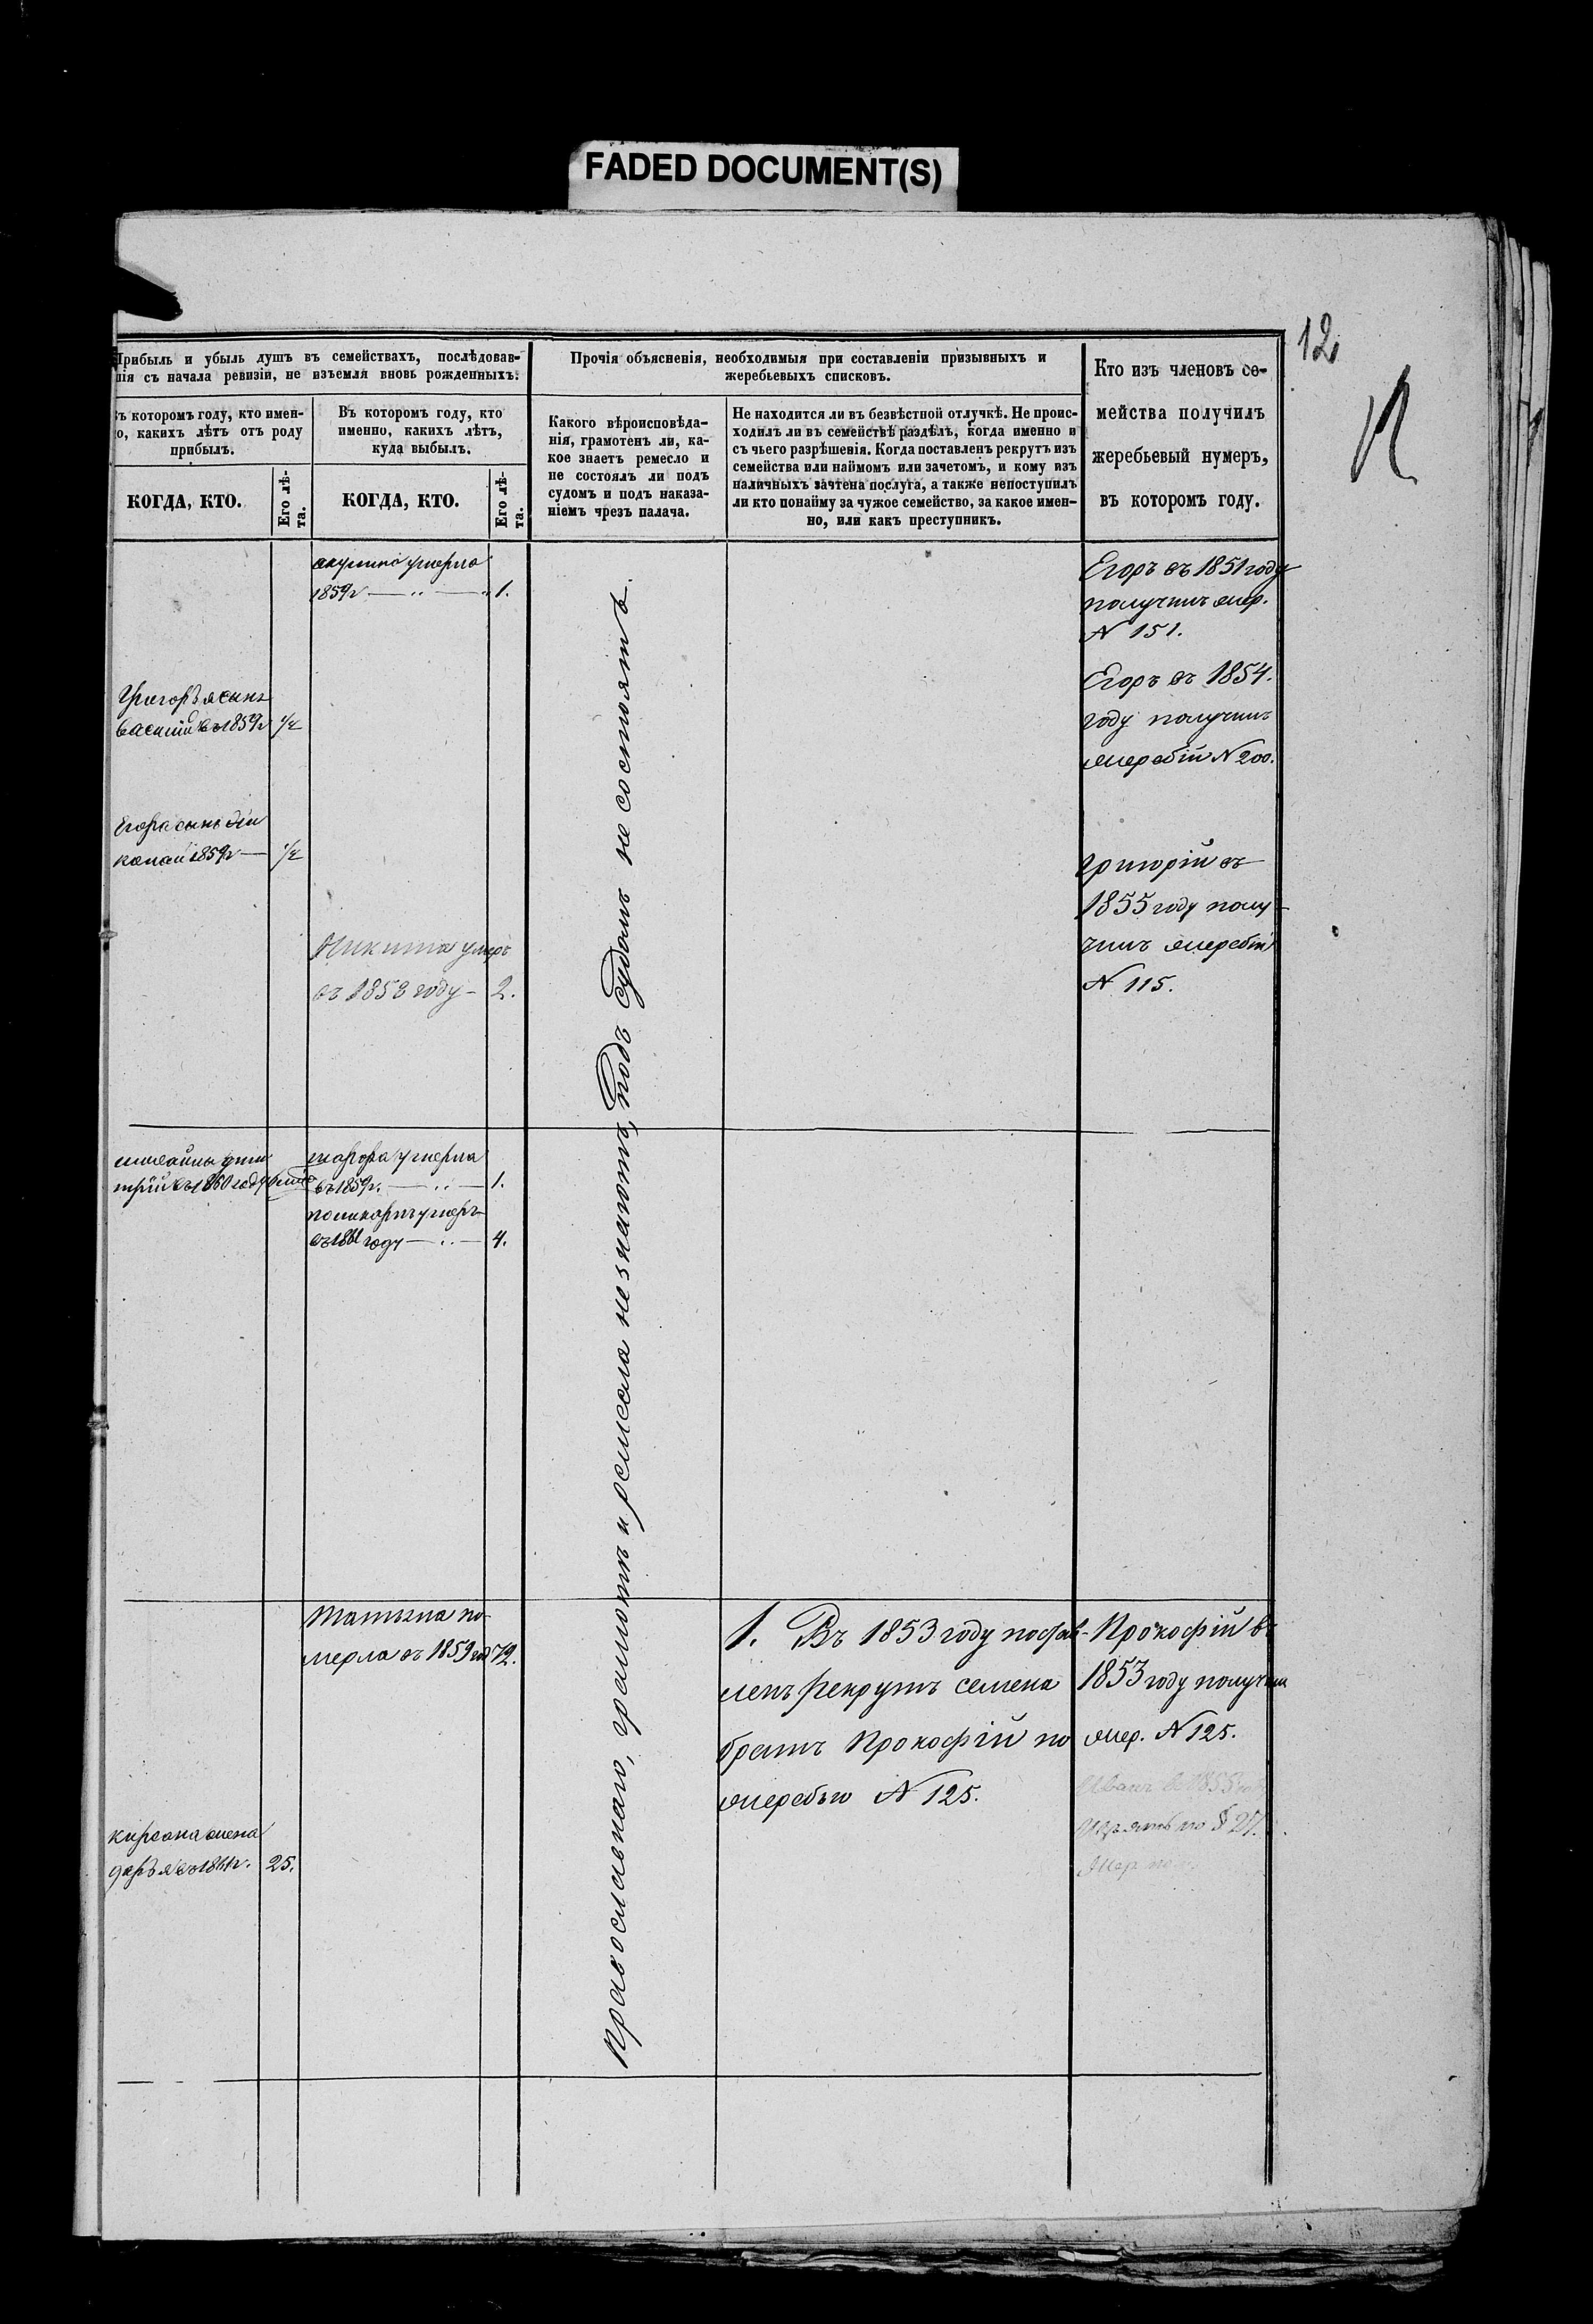 FADED DOCUMENT(S)
12
Прибыль и убыль душъ въ семействахъ, послѣдовав-
шія съ начала ревизіи, не изъемля вновь рожденныхъ.
Въ которомъ году, кто имен-
но, какихъ лѣтъ отъ роду
прибылъ.
Въ которомъ году, кто
именно, какихъ лѣтъ,
куда выбылъ.
КОГДА, КТО.
Его лѣ-
та.
КОГДА, КТО.
Его лѣ-
та.
Прочія объясненія, необходимыя при составленіи призывныхъ и
жеребьевыхъ списковъ.
Какого вѣроисповѣда-
нія, грамотенъ ли, ка-
кое знаетъ ремесло и
не состоялъ ли подъ
судомъ и подъ наказа-
ніемъ чрезъ палача.
Не находится ли въ безвѣстной отлучкѣ. Не проис-
ходилъ ли въ семействѣ раздѣлъ, когда именно и
съ чьего разрѣшенія. Когда поставленъ рекрутъ изъ
семейства или наймомъ или зачетомъ, и кому изъ
наличныхъ зачтена послуга, а также непоступилъ
ли кто понайму за чужое семейство, за какое имен-
но, или какъ преступникъ.
Кто изъ членовъ се-
мейства получилъ
жеребьевый нумеръ,
въ которомъ году.
акулина умерла
1859г — 1.
Григорья сынъ
василий въ 1859г 1/4
Егора сынъ
1859г — 1/4
Никита умеръ
въ 1853 году — 2.
въ 1860 году
умерла
въ 1859г. — 1.
поликарпъ умеръ
въ 1861 году — 4.
Татьяна по-
мерла въ 1859 год 72.
кирсана жена
дарья въ 1861г. 25.
Православнаго, грамотѣ и ремесла незнаютъ, подъ судомъ не состоятъ.
1. Въ 1853 году постав-
ленъ рекрутъ семена
братъ Прокофій по
жеребью N 125.
Егоръ въ 1851 году
получилъ жер.
N 151.
Егоръ въ 1854.
году получилъ
жеребій N 200.
григорій въ
1855 году полу-
чилъ жеребій
N 115.
Прокофій въ
1853 году получилъ
жер. N 125.
Иванъ въ 1855
по § 27.